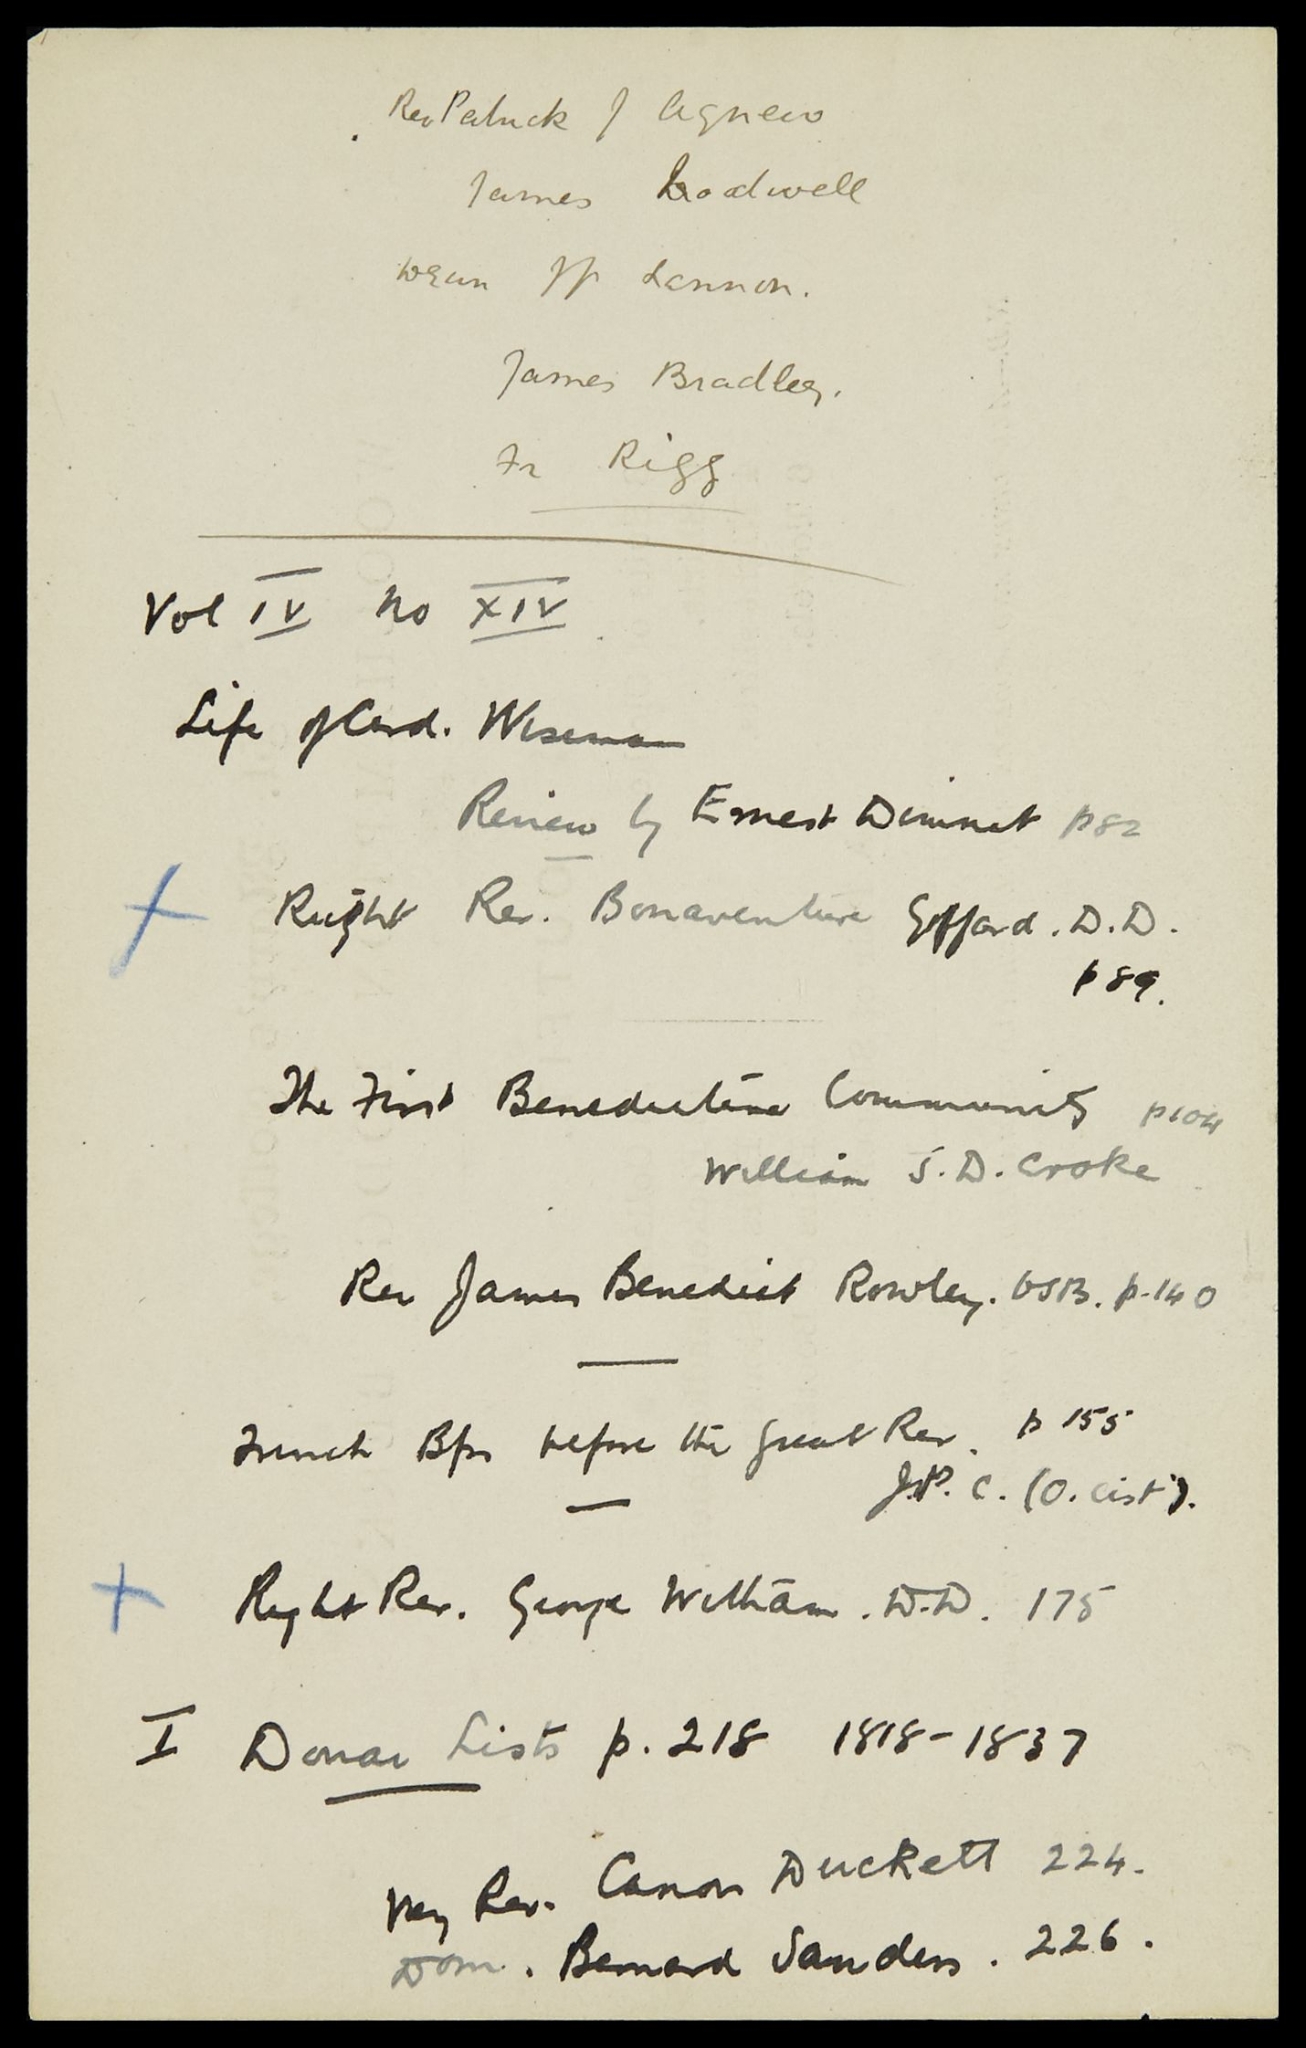 Rev Patrick J Agnew
James Loadwell
Dean JP Lannon.
James Bradley.
Fr Rigg
Vol IV No XIV
Life of Card. Wiseman
Review by Ernest Dimnet p 82
Right Rev. Bonaventure Giffard. D.D.
p 89.
The First Benedictine Community p 104
William S.D. Croke
Rev James Benedict Rowley. OSB. p. 140
French Bps before the Great Rev. p 155
J.P. C. (O. Cist).
Right Rev. George Witham. D.D. 175
I Douai Lists p. 218 1818-1837
Very Rev. Canon Duckett 224.
Dom. Bernard Sanders. 226.